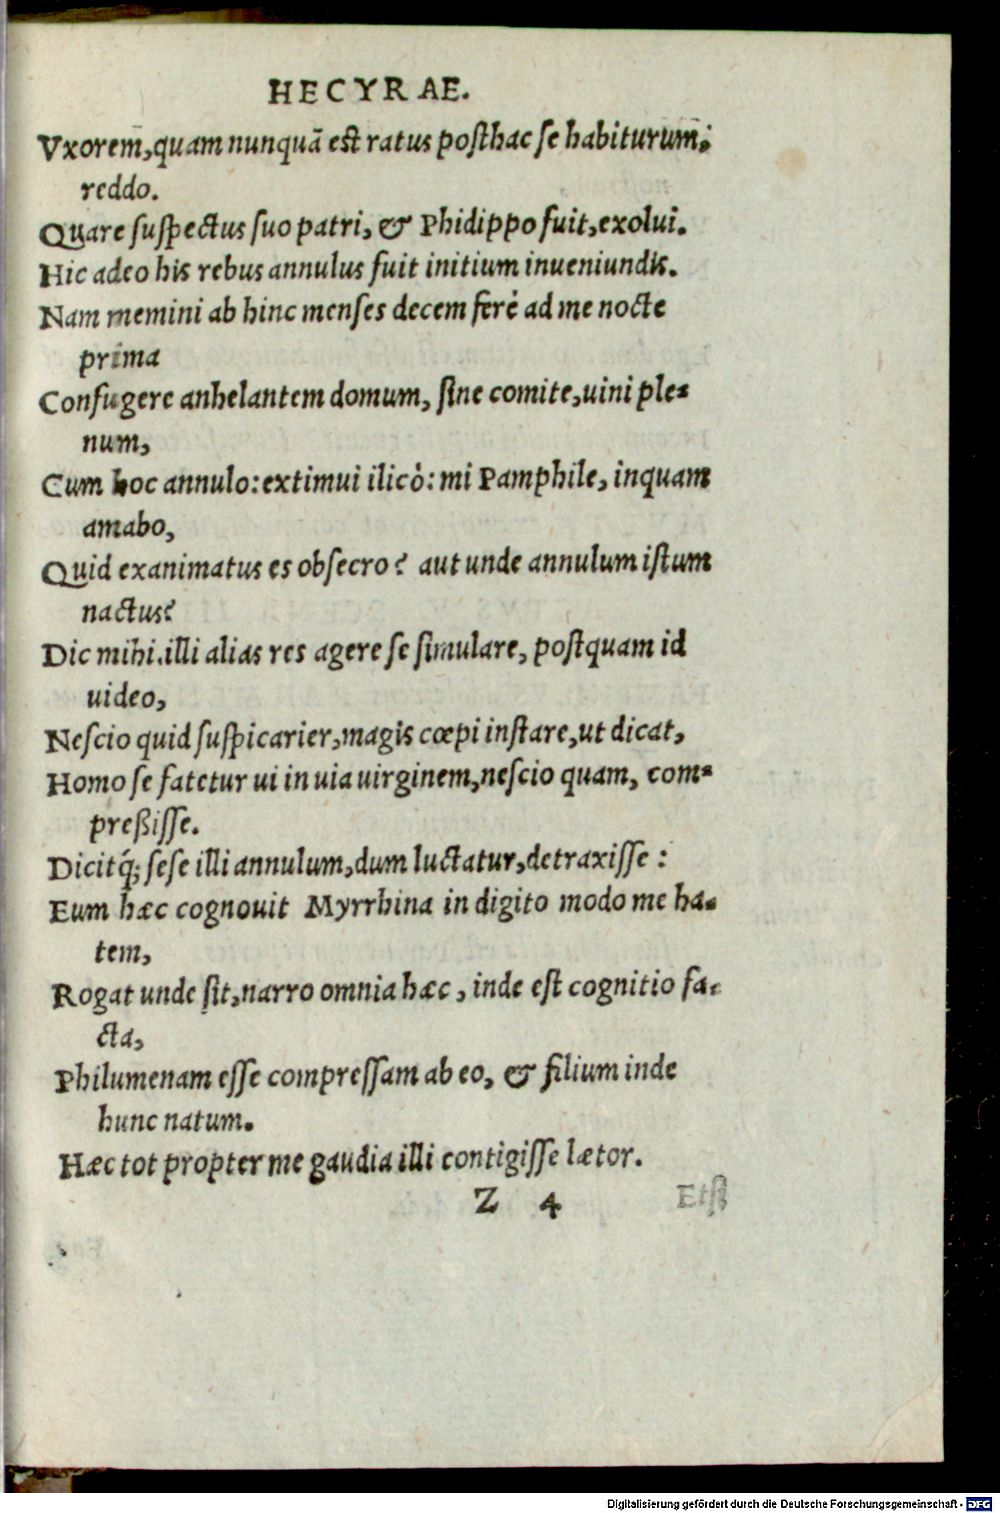 HECYRAE.
Vxorem̄,quam nunquā est ratus posthac se habiturum̄,
reddo.
Quare suspectus suo patri, & Phidippo fuit,exolui.
Hic adeo his rebus annulus fuit initium inueniundis.
Nam memini ab hinc menses decem ferè ad me nocte
prima
Confugere anhelantem domum, sine comite,uini ple-
num,
Cum hoc annulo:extimui ilicò: mi Pamphile, inquam
amabo,
Quid exanimatus es obsecro? aut unde annulum istum
nactus?
Dic mihi.illi alias res agere se simulare, postquam id
uideo,
Nescio quid suspicarier,magis cœpi instare,ut dicat,
Homo se fatetur ui in uia uirginem,nescio quam, com-
preßisse.
Dicitq́; sese illi annulum,dum luctatur,detraxisse :
Eum hæc cognouit Myrrhina in digito modo me ha-
tem,
Rogat unde sit,narro omnia hæc, inde est cognitio fa-
cta,
Philumenam esse compressam ab eo, & filium inde
hunc natum.
Hæc tot propter me gaudia illi contigisse lætor.
Z 4 Etsi
Digitalisierung gefördert durch die Deutsche Forschungsgemeinschaft - DFG